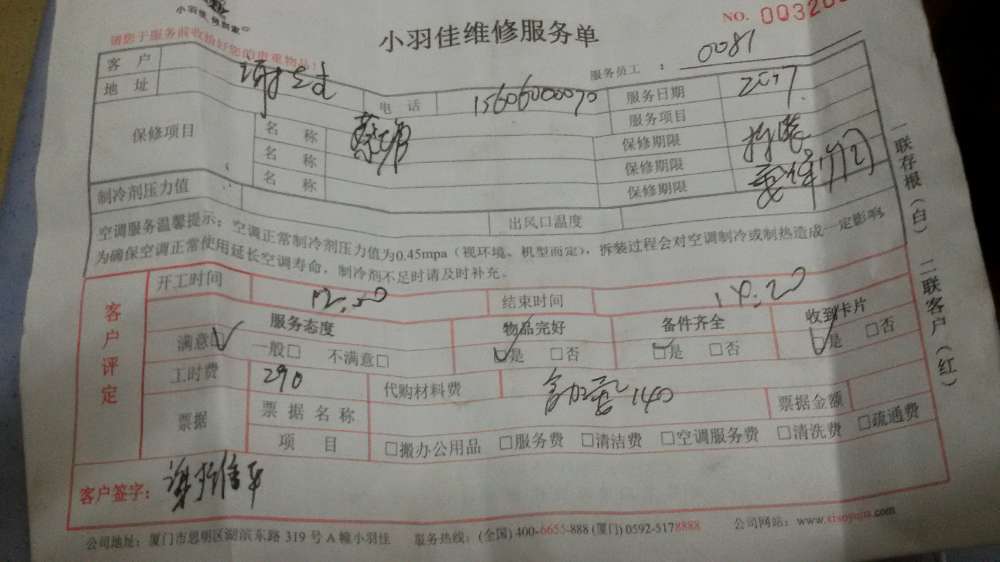 小羽佳
NO. 00320
小羽佳维修服务单
请您于服务前收拾好您的贵重物品!
服务员工 : 0081
客 户
电 话 15606000070
服务日期
地 址
服务项目
保修项目
名 称
保修期限
名 称
保修期限
名 称
保修期限
制冷剂压力值
出风口温度
空调服务温馨提示:空调正常制冷剂压力值为0.45mpa(视环境、机型而定),拆装过程会对空调制冷或制热造成一定影响
为确保空调正常使用延长空调寿命,制冷剂不足时请及时补充。
一联存根(白) 二联客户(红)
客户评定
开工时间 12:50
结束时间 14:20
服务态度
物品完好
备件齐全
收到卡片
满意☑ 一般□ 不满意□
☑是 □否
☑是 □否
☑是 □否
工时费 290
代购材料费 140
票据
票据名称
票据金额
项 目
□搬办公用品 □服务费 □清洁费 □空调服务费 □清洗费 □疏通费
客户签字:
公司地址:厦门市思明区湖滨东路 319 号 A 幢小羽佳
服务热线:(全国) 400-6655-888 (厦门) 0592-5178888
公司网站:www.xiaoyujia.com